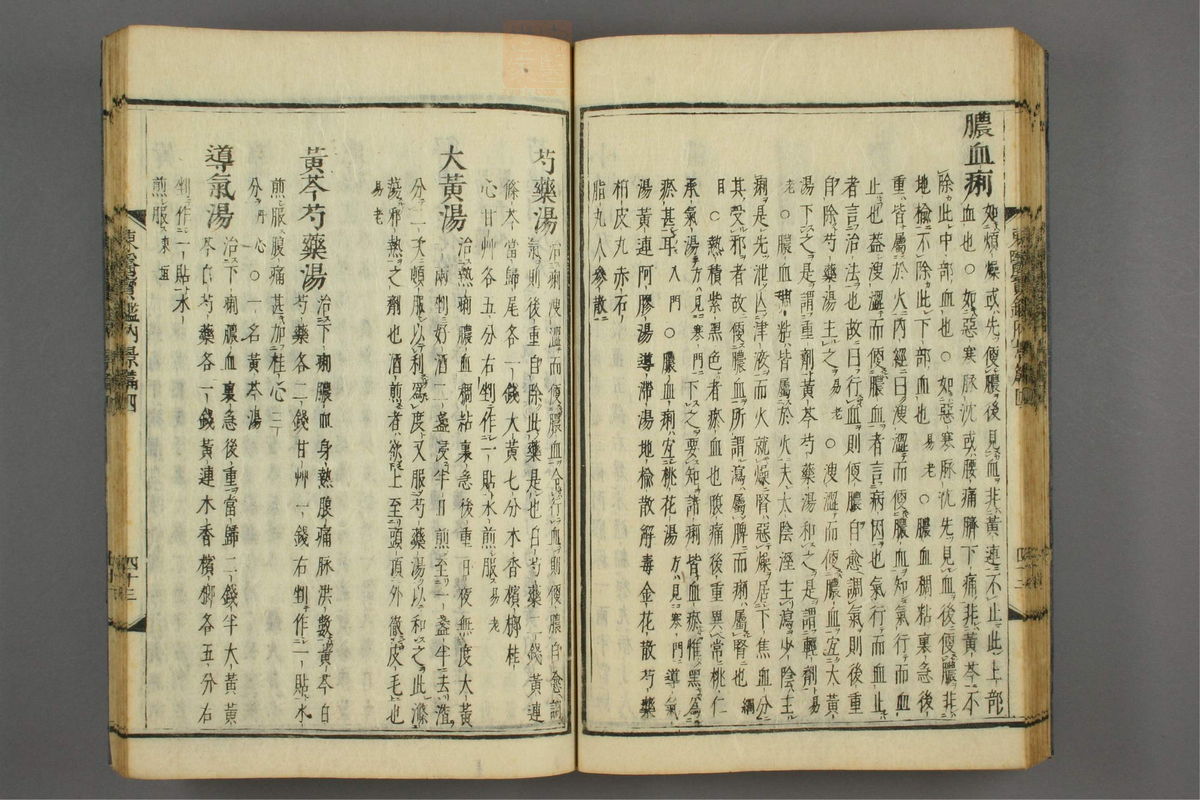 膿血痢 如煩燥或先便膿後見血非黄連不止此上部
血也○如惡寒脉沈或腰痛臍下痛非黄芩不
除此中部血也○如惡寒脉沈先見血後便膿非
地楡不除此下部血也易老○膿血稠粘裏急後
重皆屬於火内經曰溲澁而便膿血知氣行而血
止也盖溲澁而便膿血者言病因也氣行而血止
者言治法也故曰行血則便膿自愈調氣則後重
自除芍藥湯主之易老○溲澁而便膿血宜大黄
湯下之是謂重劑黄芩芍藥湯和之是謂輕劑易
老○膿血稠粘皆屬於火夫太陰濕主瀉少陰主
痢是先泄亡津液而火就燥腎惡燥居下焦血分
其受邪者故便膿血所謂瀉屬脾而痢屬腎也綱
目○熱積紫黑色者瘀血也腹痛後重異常桃仁
承氣湯方見寒門下之要知諸痢皆血瘀惟黑爲
瘀甚耳入門○膿血痢宜桃花湯方見寒門導氣
湯黄連阿膠湯導滯湯地楡散解毒金花散芍藥
柏皮丸赤石
脂丸人參散
芍藥湯 治痢溲澁而便膿血令行血則便膿自愈調
氣則後重自除此藥是也白芍藥二錢黄連
條芩當歸尾各一錢大黄七分木香檳榔桂
心甘艸各五分右剉作一貼水煎服易老
大黄湯 治熱痢膿血稠粘裏急後重日夜無度大黄
一兩剉好酒二盞浸半日煎至一盞半去滓
分二次頓服以利爲度又服芍藥湯以和之此滌
蕩邪熱之劑也酒煎者欲上至頭頂外徹皮毛也
易老
黄芩芍藥湯 治下痢膿血身熱腹痛脉洪數黄芩白
芍藥各二錢甘艸一錢右剉作一貼水
煎服腹痛甚加桂心三
分丹心○一名黄芩湯
導氣湯 治下痢膿血裏急後重當歸二錢半大黄黄
芩白芍藥各一錢黄連木香檳榔各五分右
剉作一貼水
煎服東垣
東醫寶鑑内景篇四
四十三